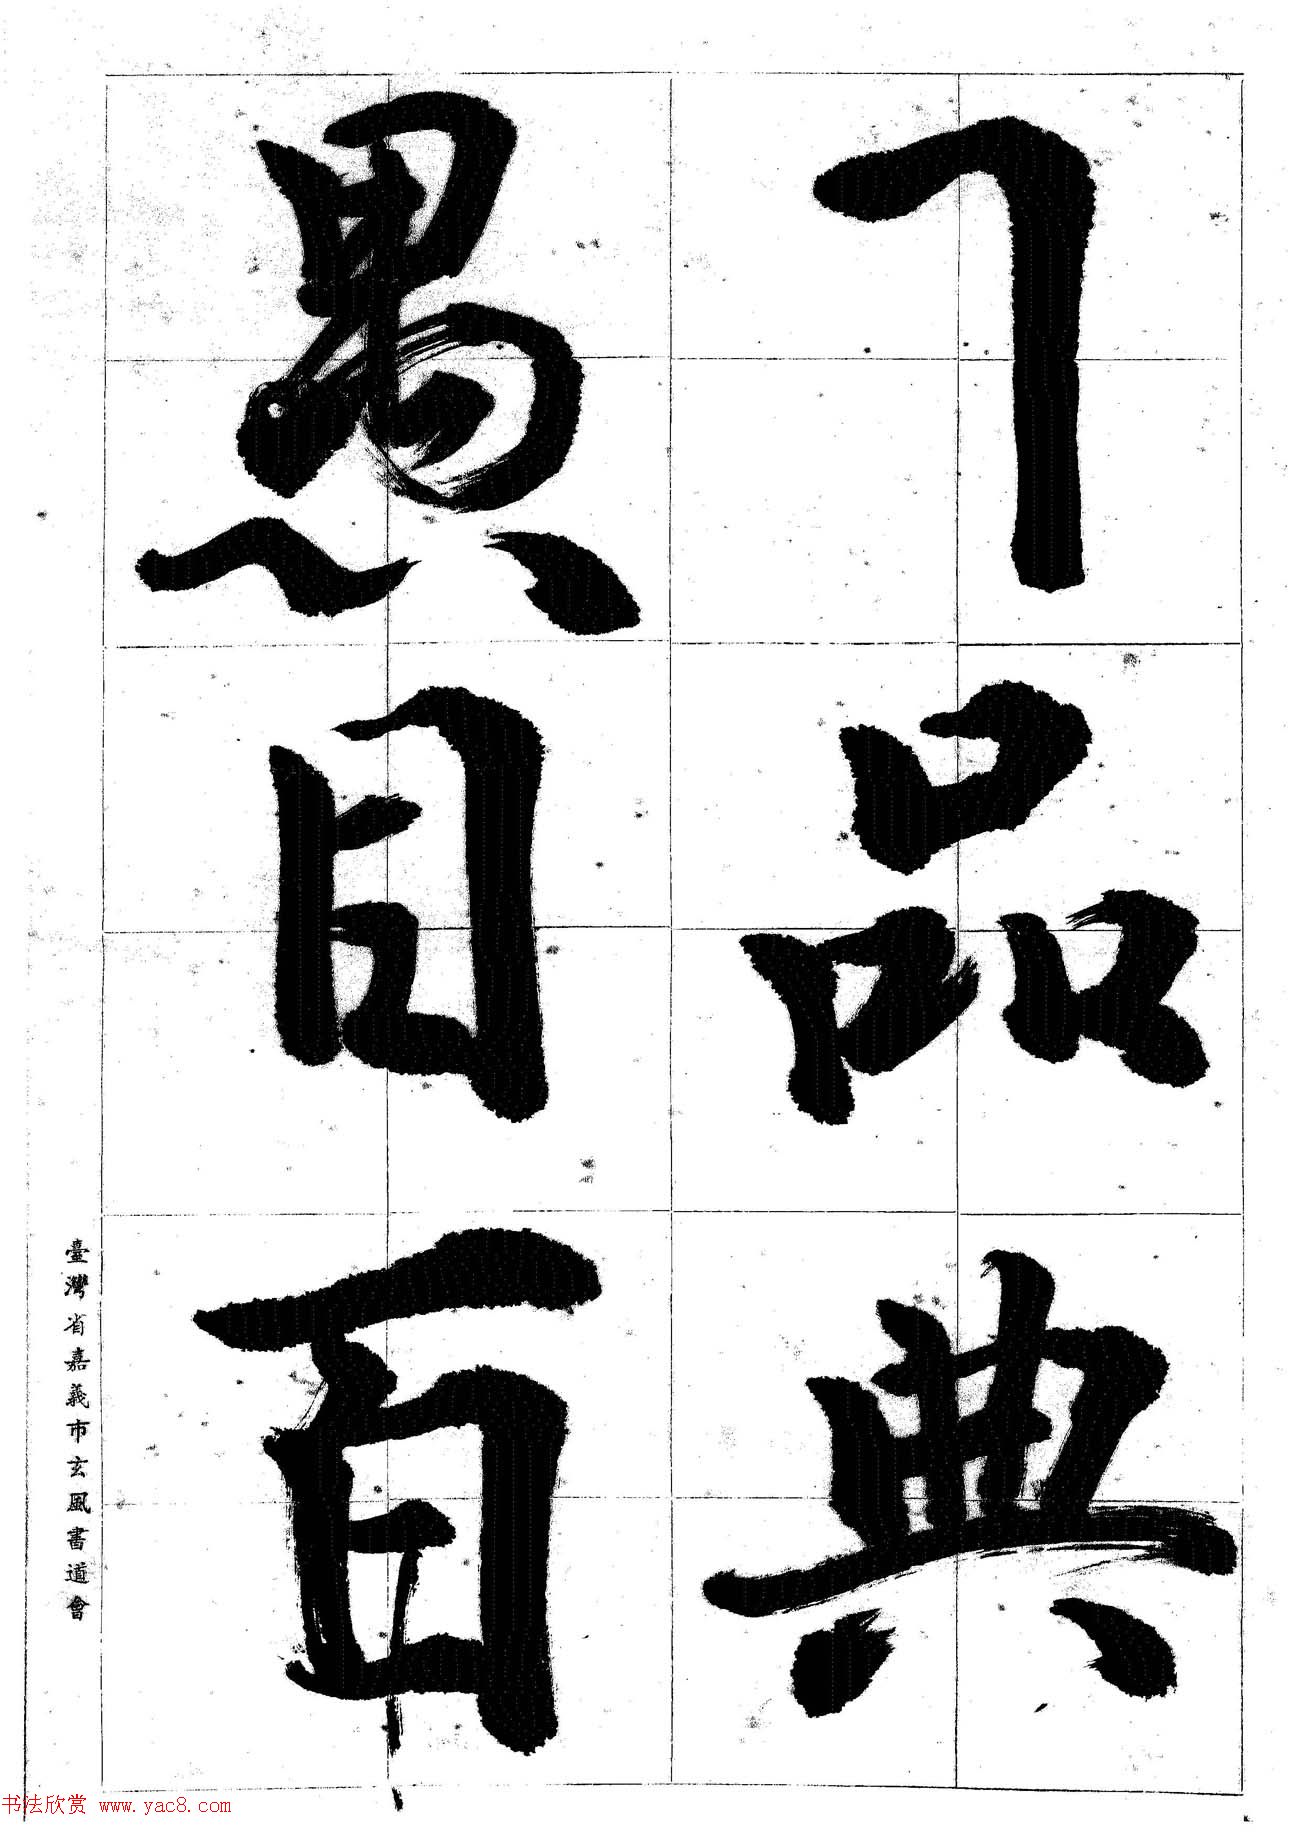 𠃍品典
愚目百
臺灣省嘉義市玄風書道會
书法欣赏 www.yac8.com